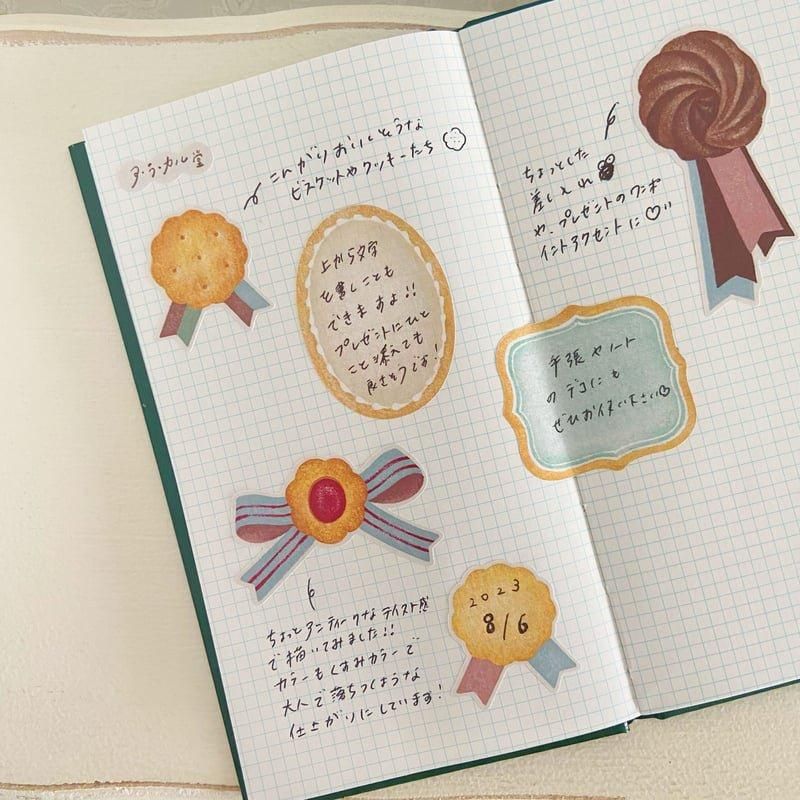 ア・ラ・カル堂
こんがりおいしそうな
ビスケットやクッキーたち
上から文字
を書くことも
できますよ!!
プレゼントにひと
こと添えても
良さそうです!
ちょっとアンティークなテイスト感
で描いてみました!!
カラーもくすみカラーで
大人で落ちつくような
仕上がりにしています!
2023
8/6
ちょっとした
差し入れ
や、プレゼントのワンポ
イントアクセントに♡!!
手張やノート
のデコにも
ぜひお使いください